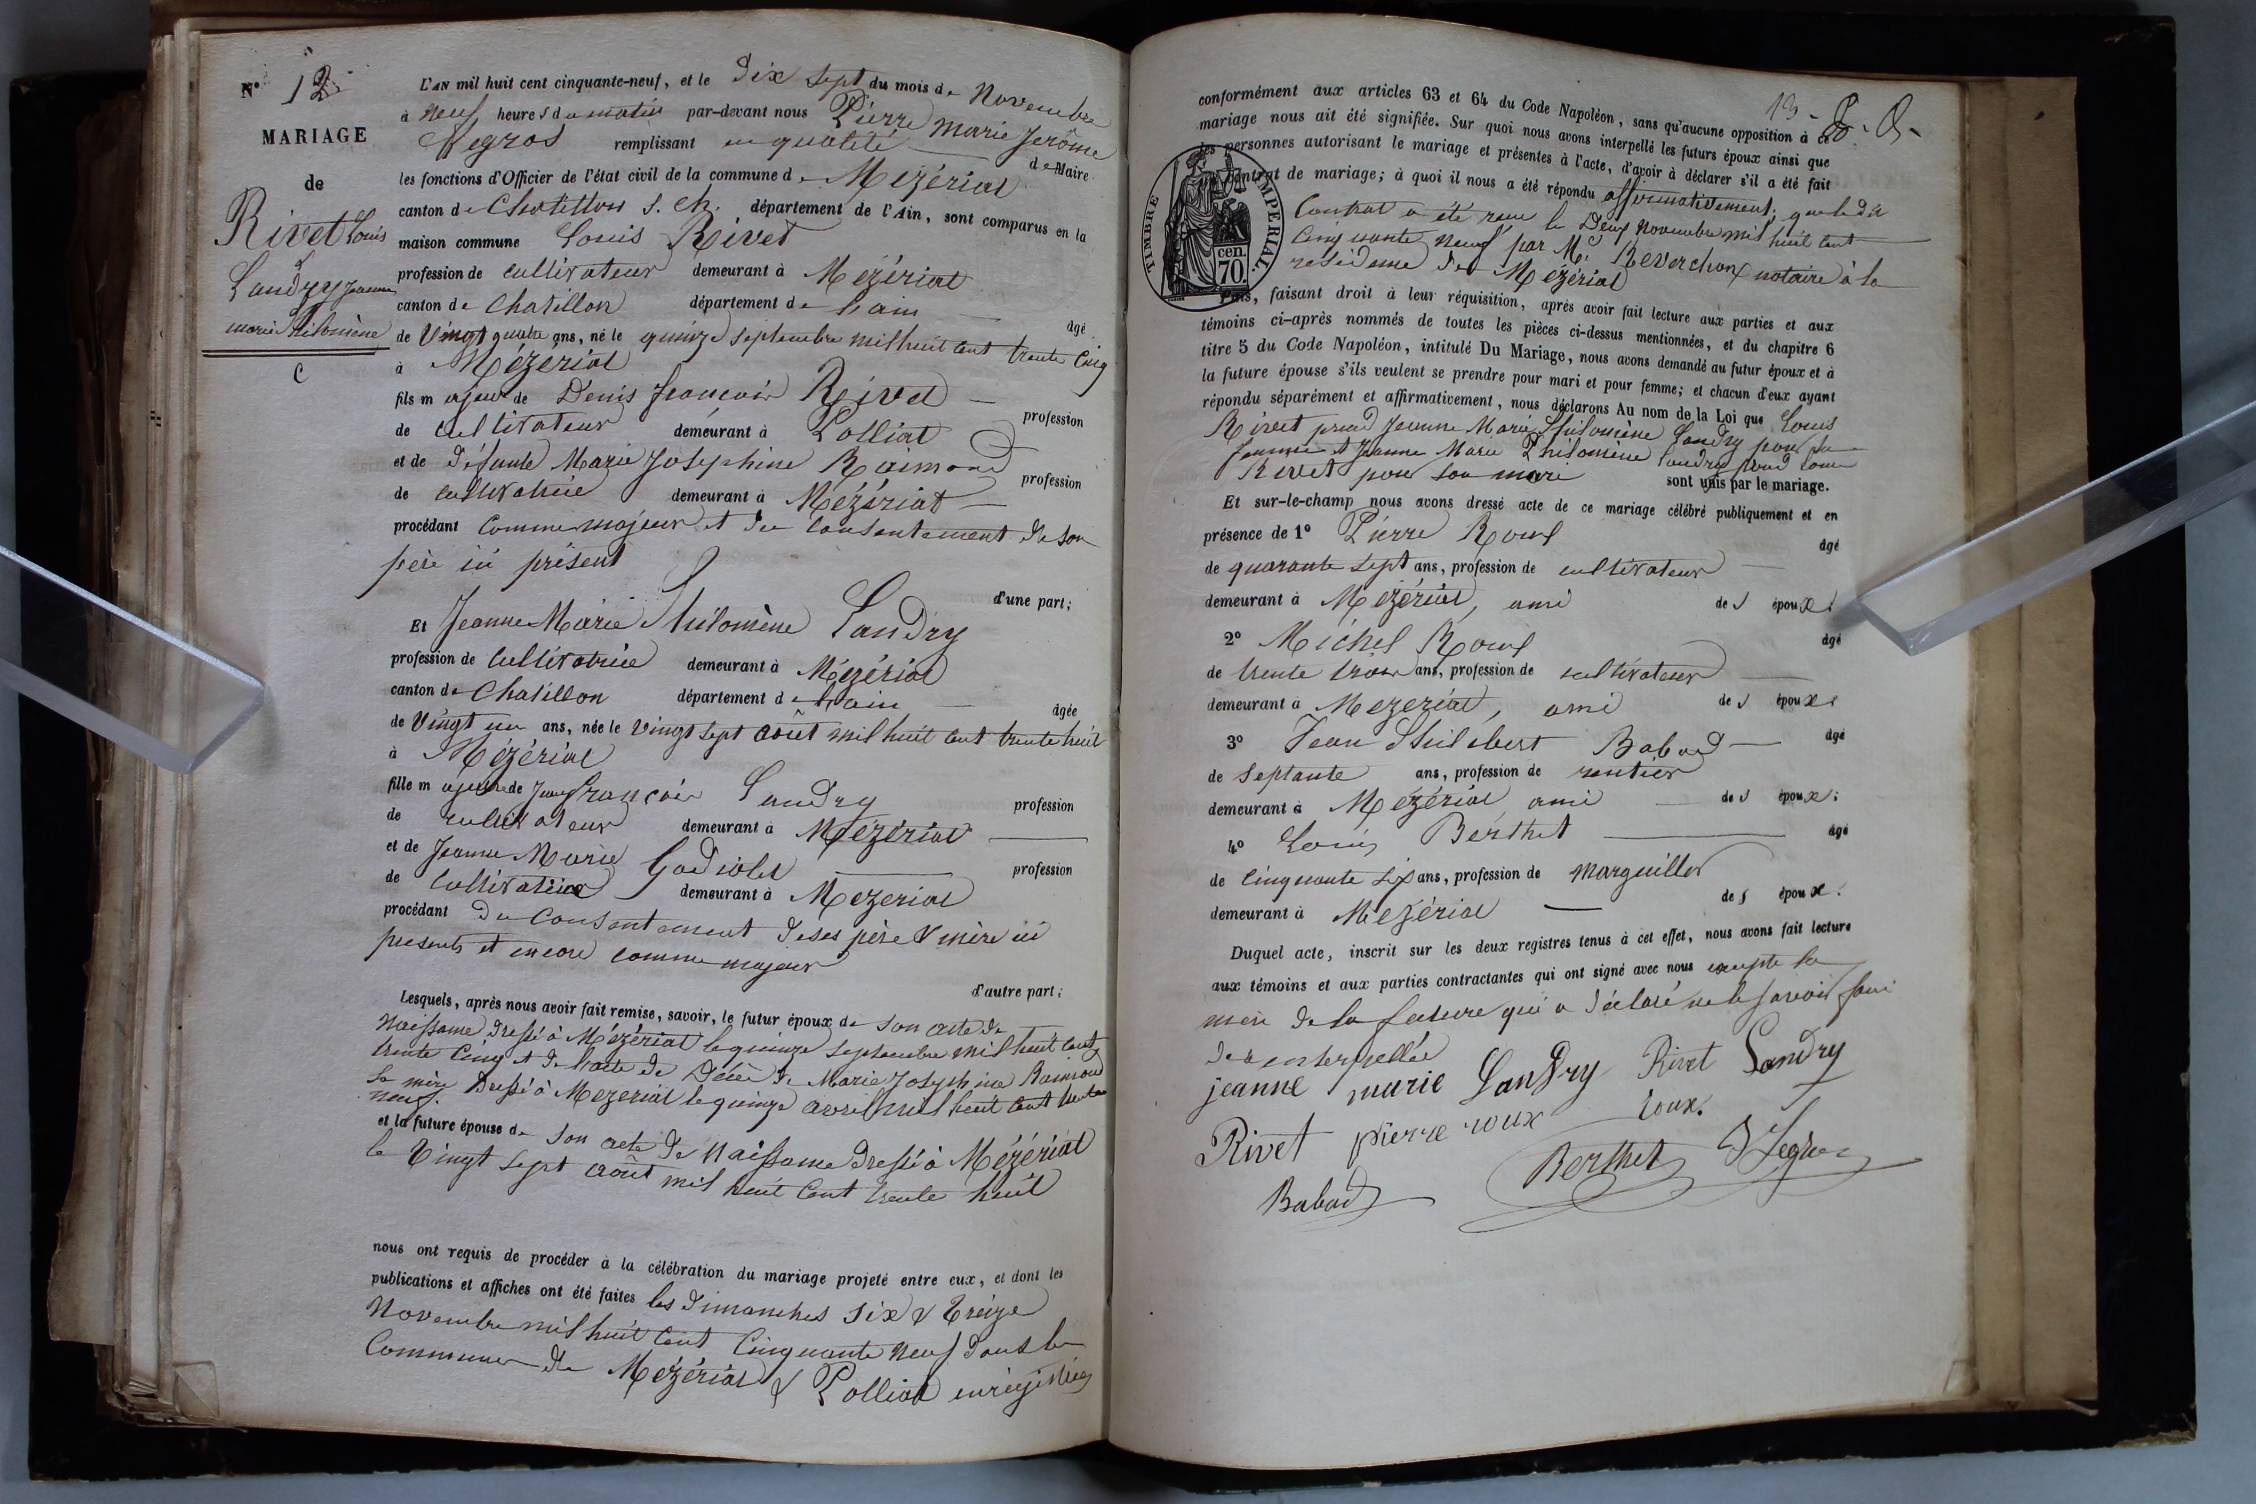 N° 12
MARIAGE
de
Rivet Louis
Landry Jeanne
marie Philomène
C
L'AN mil huit cent cinquante-neuf, et le Dix sept du mois de Novembre
à neuf heures du matin par-devant nous Pierre Marie Jerôme
Negros remplissant en qualité de Maire
les fonctions d'Officier de l'état civil de la commune de Mézériat
canton de Chatillon s. Ch. département de l'Ain, sont comparus en la
maison commune Louis Rivet
profession de cultivateur demeurant à Mézériat
canton de Chatillon département de l'ain âgé
de Vingt quatre ans, né le quinze septembre mil huit cent trente cinq
à Mézériat
fils majeur de Denis françois Rivet profession
de cultivateur demeurant à Polliat
et de défunte Marie Josephine Raimond profession
de cultivatrice demeurant à Mézériat
procédant comme majeur et du consentement de son
père ici présent
d'une part;
Et Jeanne Marie Philomène Landry
profession de cultivatrice demeurant à Mézériat
canton de Chatillon département de l'ain âgée
de Vingt un ans, née le vingt sept août mil huit cent trente huit
à Mézériat
fille majeure de Jean françois Landry profession
de cultivateur demeurant à Mézériat
et de Jeanne Marie Godiolet profession
de cultivatrice demeurant à Mézériat
procédant du consentement de ses père & mère ici
présents et encore comme majeur
d'autre part;
Lesquels, après nous avoir fait remise, savoir, le futur époux de son acte de
naissance dressé à Mézériat le quinze septembre mil huit cent
trente cinq et de l'acte de décès de Marie Josephine Raimond
sa mère dressé à Mézériat le quinze avril mil huit cent trente
neuf.
et la future épouse de son acte de naissance dressé à Mézériat
le Vingt sept août mil huit cent trente huit
nous ont requis de procéder à la célébration du mariage projeté entre eux, et dont les
publications et affiches ont été faites les dimanches six & treize
Novembre mil huit cent cinquante neuf dans les
Communes de Mézériat & Polliat enregistrées
13
conformément aux articles 63 et 64 du Code Napoléon, sans qu'aucune opposition à ce
mariage nous ait été signifiée. Sur quoi nous avons interpellé les futurs époux ainsi que
les personnes autorisant le mariage et présentes à l'acte, d'avoir à déclarer s'il a été fait
contrat de mariage; à quoi il nous a été répondu affirmativement; que le dit
Contrat a été reçu le Deux novembre mil huit cent
cinquante neuf par Me. Reverchon notaire à la
résidence de Mézériat
TIMBRE IMPERIAL.
70 cen.
Puis, faisant droit à leur réquisition, après avoir fait lecture aux parties et aux
témoins ci-après nommés de toutes les pièces ci-dessus mentionnées, et du chapitre 6
titre 5 du Code Napoléon, intitulé Du Mariage, nous avons demandé au futur époux et à
la future épouse s'ils veulent se prendre pour mari et pour femme; et chacun d'eux ayant
répondu séparément et affirmativement, nous déclarons Au nom de la Loi que Louis
Rivet prend Jeanne Marie Philomène Landry pour sa
femme et Jeanne Marie Philomène Landry prend Louis
Rivet pour son mari sont unis par le mariage.
Et sur-le-champ nous avons dressé acte de ce mariage célébré publiquement et en
présence de 1° Pierre Roux âgé
de quarante sept ans, profession de cultivateur
demeurant à Mézériat, ami des époux;
2° Michel Roux âgé
de trente trois ans, profession de cultivateur
demeurant à Mezeriat, ami des époux;
3° Jean Philibert Babad âgé
de septante ans, profession de rentier
demeurant à Mézériat ami des époux;
4° Louis Berthet âgé
de cinquante six ans, profession de marguiller
demeurant à Mézériat des époux.
Duquel acte, inscrit sur les deux registres tenus à cet effet, nous avons fait lecture
aux témoins et aux parties contractantes qui ont signé avec nous excepté la
mère de la future qui a déclaré ne le savoir faire
de ce interpellée
jeanne marie Landry Rivet Landry
Rivet pierre roux roux.
Babad Berthet